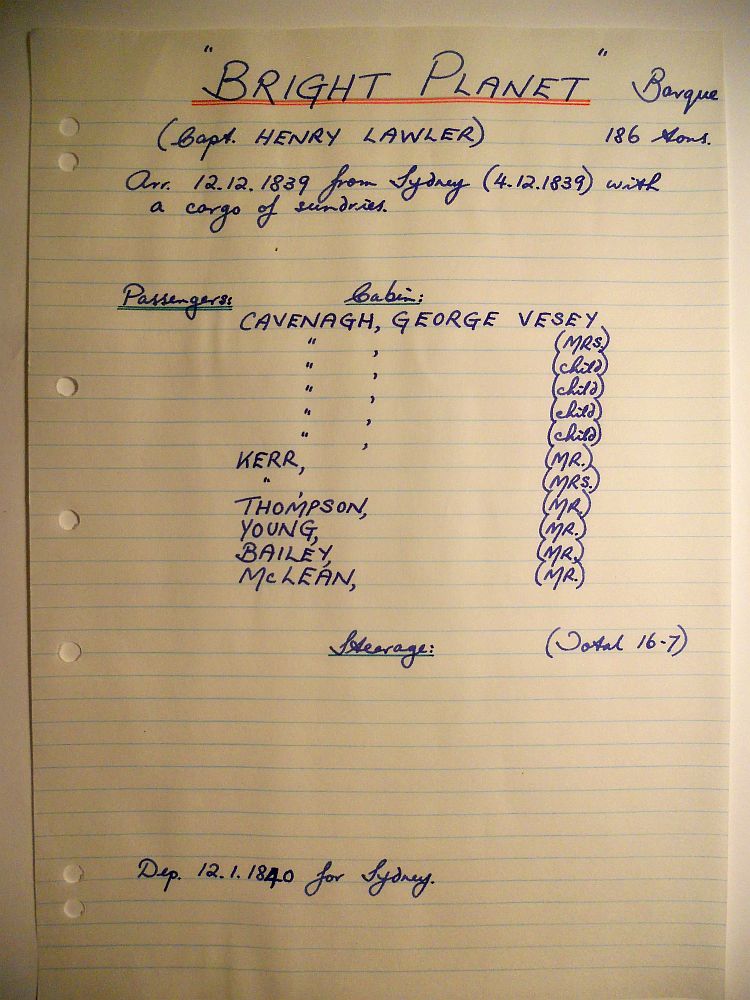 "BRIGHT PLANET" Barque
(Capt. HENRY LAWLER) 186 tons.
Arr. 12.12.1839 from Sydney (4.12.1839) with
a cargo of sundries.
Passengers: Cabin:
CAVENAGH, GEORGE VESEY
" , (MRS.)
" , (child)
" , (child)
" , (child)
" , (child)
KERR, (MR.)
" , (MRS.)
THOMPSON, (MR.)
YOUNG, (MR.)
BAILEY, (MR.)
McLEAN, (MR.)
Steerage: (Total 16-7)
Dep. 12.1.1840 for Sydney.